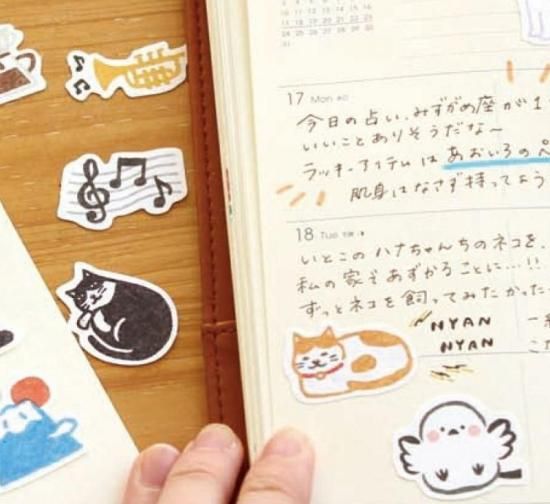 17 Mon
今日の占い、みずがめ座が1
いいことありそうだな〜
ラッキーアイテムは あおいろのペ
肌身はなさず持ってよう
18 Tue
いとこのハナちゃんちのネコを、
私の家であずかることに…!!
ずっとネコを飼ってみたかった
NYAN
NYAN
一
こ